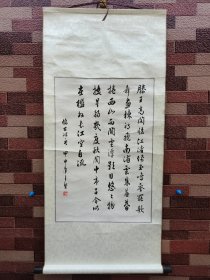 滕王高阁临江渚佩玉鸣鸾罢歌
舞画栋朝飞南浦云珠帘暮
捲西山雨闲云潭影日悠々物
换星移几度秋阁中帝子今何
在槛外长江空自流